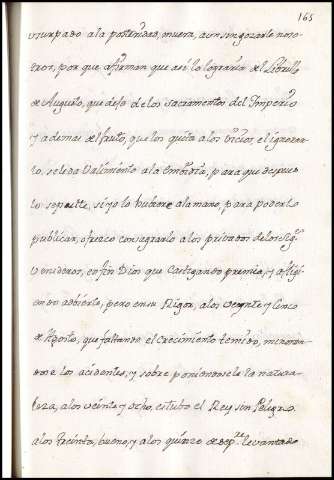 165
usurpado ala posteridad, muera, aun sin gozarle noso-
tros, por que afirman que asi lo lograria el Librillo
de Augusto, que dejo de los sacramentos del Imperio
y ademas del fruto, que los quita a los Vicios, el ignorar-
lo, se le da Valimiento ala embidia, para que despues
lo sepulte, si yo lo hubiere alamano, para poderlo
publicar, ofrezco consagrarle alos privados delos sig.
Venideros, en fin Dios que Castigando premia, y afligi-
endo advierte, pero en su Rigor, a los veynte y cinco
de Agosto, que faltando el Crecimiento temido, minoran-
dose los acidentes, y sobre poniendose la natura-
leza, alos veinte y ocho, estubo el Rey sin Peligro
alos treinta, bueno, y alos quinze de sep.re levantado